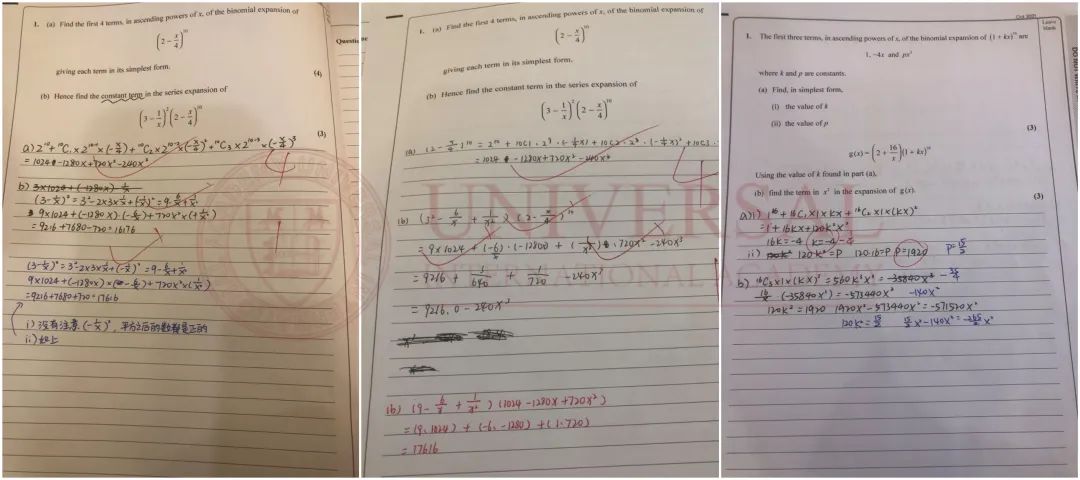 1. (a) Find the first 4 terms, in ascending powers of x, of the binomial expansion of
(2 − x/4)¹⁰
giving each term in its simplest form.
(4)
(b) Hence find the constant term in the series expansion of
(3 − 1/x)² (2 − x/4)¹⁰
(3)
a) 2¹⁰ + ¹⁰C₁ × 2¹⁰⁻¹ × (−x/4) + ¹⁰C₂ × 2¹⁰⁻² × (−x/4)² + ¹⁰C₃ × 2¹⁰⁻³ × (−x/4)³
= 1024 − 1280x + 720x² − 240x³
b) 3×1024 + (−1280x) 1/x
(3−1/x)² = 3² − 2×3×1/x + (−1/x)² = 9 − 6/x + 1/x²
9×1024 + (−1280x)·(−6/x) + 720x² × (1/x²)
= 9216 + 7680 − 720 = 16176
(3−1/x)² = 3² − 2×3×1/x + (−1/x)² = 9 − 6/x + 1/x²
9×1024 + (−1280x) × (−6/x) + 720x² × (1/x²)
= 9216 + 7680 + 720 = 17616
i) 没有注意 (−1/x)², 平方之后的数都是正的
ii) 如上
Questi
1. (a) Find the first 4 terms, in ascending powers of x, of the binomial expansion of
(2 − x/4)¹⁰
giving each term in its simplest form.
(b) Hence find the constant term in the series expansion of
(3 − 1/x)² (2 − x/4)¹⁰
(a) (2 − x/4)¹⁰ = 2¹⁰ + 10C1 · 2⁹ · (−¼x) + 10C2 · 2⁸ · (−¼x)² + 10C3 ·
= 1024 − 1280x + 720x² − 240x³
(b) (3² − 6/x + 1/x²) (2 − x/4)¹⁰
= 9×1024 + (−6/x) · (−1280x) + (1/x²) · 720x² − 240x³
= 9216 + 1/640 + 1/720 − 240x³
= 9216.0 − 240x³
(b) (9 − 6/x + 1/x²) (1024 − 1280x + 720x²)
= (9·1024) + (−6·−1280) + (1·720)
= 17616
Oct 2021
Leave
blank
1. The first three terms, in ascending powers of x, of the binomial expansion of (1 + kx)¹⁶ are
1, −4x and px²
where k and p are constants.
(a) Find, in simplest form,
(i) the value of k
(ii) the value of p
(3)
g(x) = (2 + 16/x)(1 + kx)¹⁶
Using the value of k found in part (a),
(b) find the term in x² in the expansion of g(x).
(3)
a) i) 1¹⁶ + 16C₁ × 1 × kx + ¹⁶C₂ × 1 × (kx)²
= 1 + 16kx + 120k²x²
16k = −4 k = −4
ii) 120k² 120k² = P 120·16 = P P = 1920 P = 15/2
b) ¹⁶C₃ × 1 × (kx)³ = 560k³x³ = −35840x³ −35/4
16/x (−35840x³) = −573440x² −140x²
120k² = 1920 1920x² − 573440x² = −571520x²
120k² = 15/2 15/2 x² − 140x² = −265/2 x²
UNIVERSAL